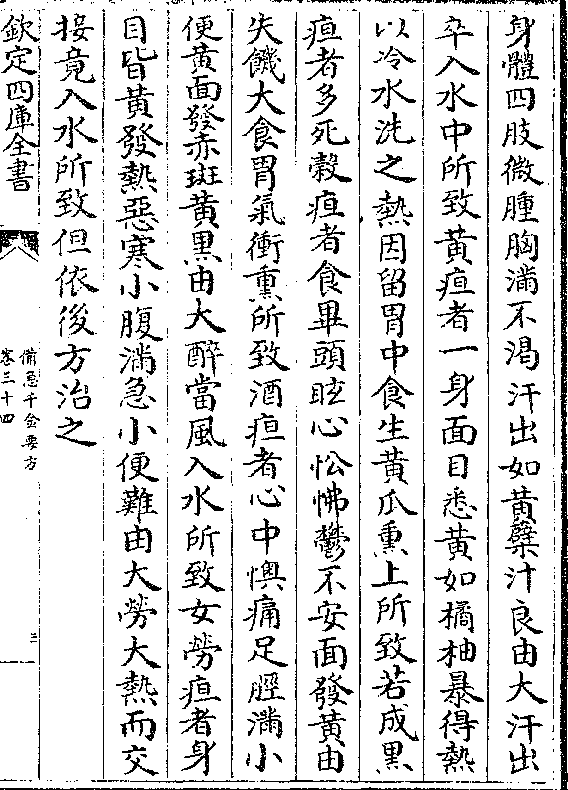 身體四肢微腫胸滿不渇汗出如黄蘗汁良由大汗出
卒入水中所致黄疸者一身面目悉黄如橘柚暴得熱
以冷水洗之熱因留胃中食生黄瓜熏上所致若成黑
疸者多死穀疸者食畢頭眩心忪怫鬱不安面發黄由
失饑大食胃氣衝熏所致酒疸者心中懊痛足脛滿小
便黄面發赤斑黄黒由大醉當風入水所致女勞疸者身
目皆黄發熱惡寒小腹滿急小便難由大勞大熱而交
接竟入水所致但依後方治之
欽定四庫全書
備急千金要方
卷三十四
三